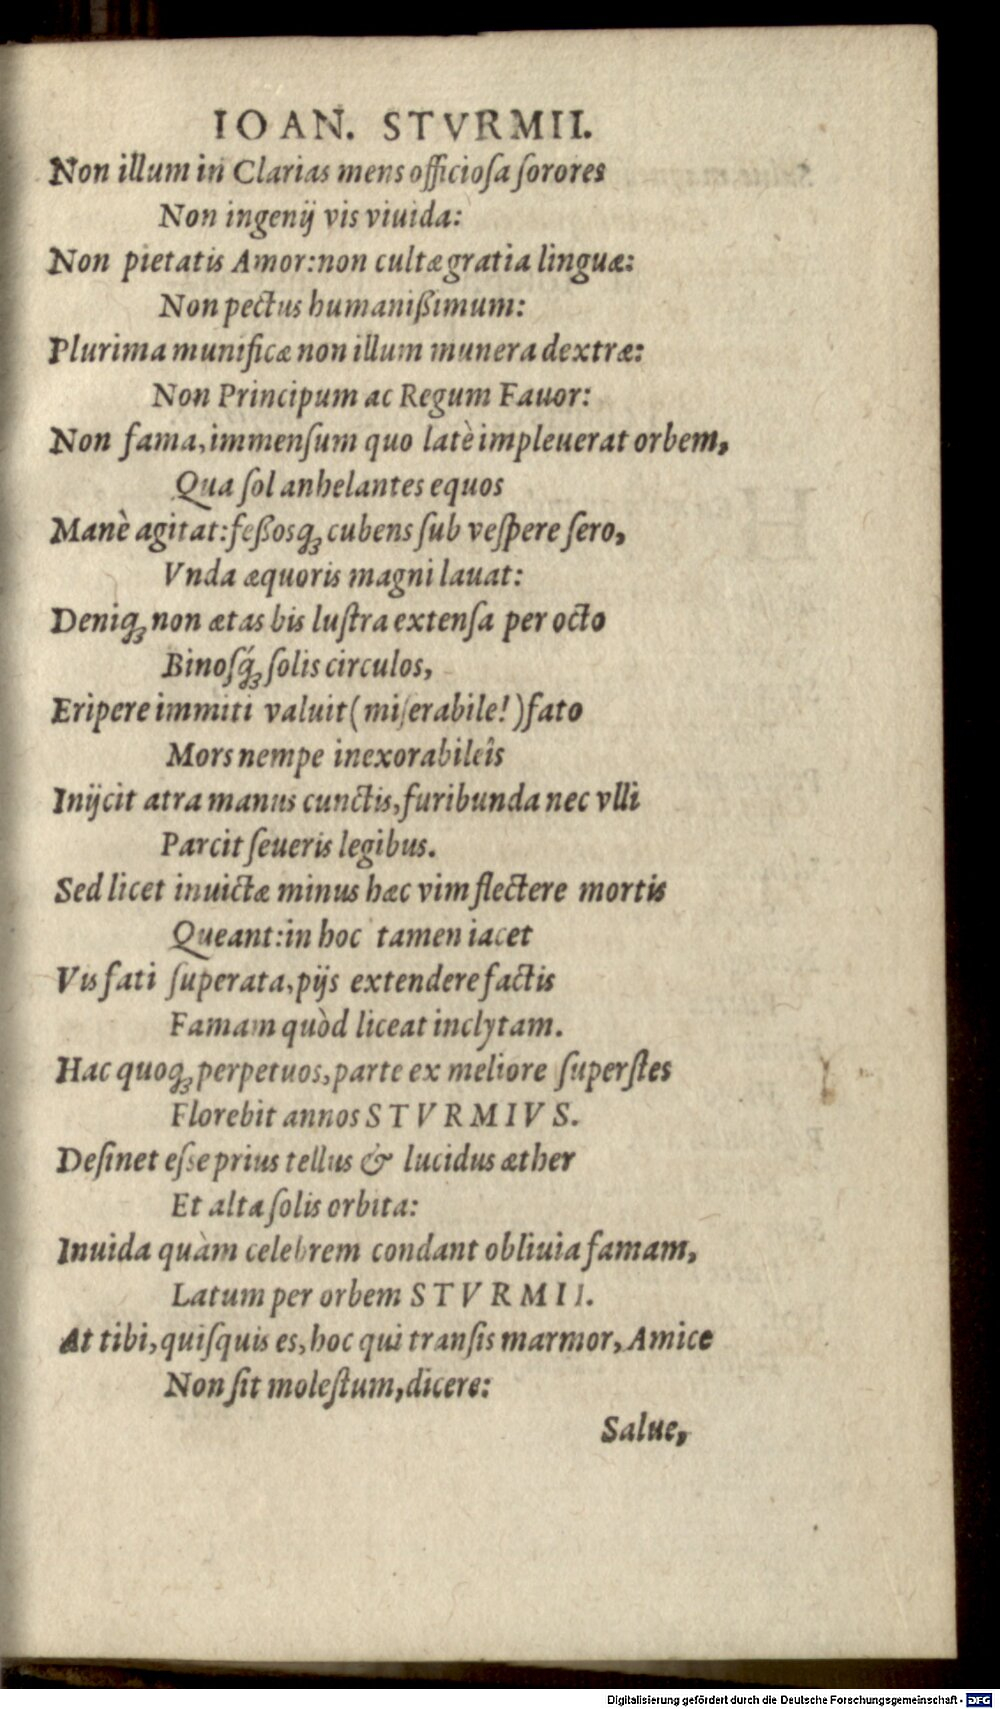 IOAN. STVRMII.
Non illum in Clarias mens officioſa ſorores
Non ingenij vis viuida:
Non pietatis Amor: non cultæ gratia linguæ:
Non pectus humanißimum:
Plurima munificæ non illum munera dextræ:
Non Principum ac Regum Fauor:
Non fama, immenſum quo latè impleuerat orbem,
Qua ſol anhelantes equos
Manè agitat: feßosꝗ cubens ſub veſpere ſero,
Vnda æquoris magni lauat:
Deniꝗ non ætas bis luſtra extenſa per octo
Binoſꝗ́ ſolis circulos,
Eripere immiti valuit (miſerabile!) fato
Mors nempe inexorabileîs
Inijcit atra manus cunctis, furibunda nec vlli
Parcit ſeueris legibus.
Sed licet inuictæ minus hæc vim flectere mortis
Queant: in hoc tamen iacet
Vis fati ſuperata, pijs extendere factis
Famam quòd liceat inclytam.
Hac quoꝗ perpetuos, parte ex meliore ſuperſtes
Florebit annos STVRMIVS.
Deſinet eſse prius tellus & lucidus æther
Et alta ſolis orbita:
Inuida quàm celebrem condant obliuia famam,
Latum per orbem STVRMII.
At tibi, quiſquis es, hoc qui tranſis marmor, Amice
Non ſit moleſtum, dicere:
Salue,
Digitalisierung gefördert durch die Deutsche Forschungsgemeinschaft - DFG